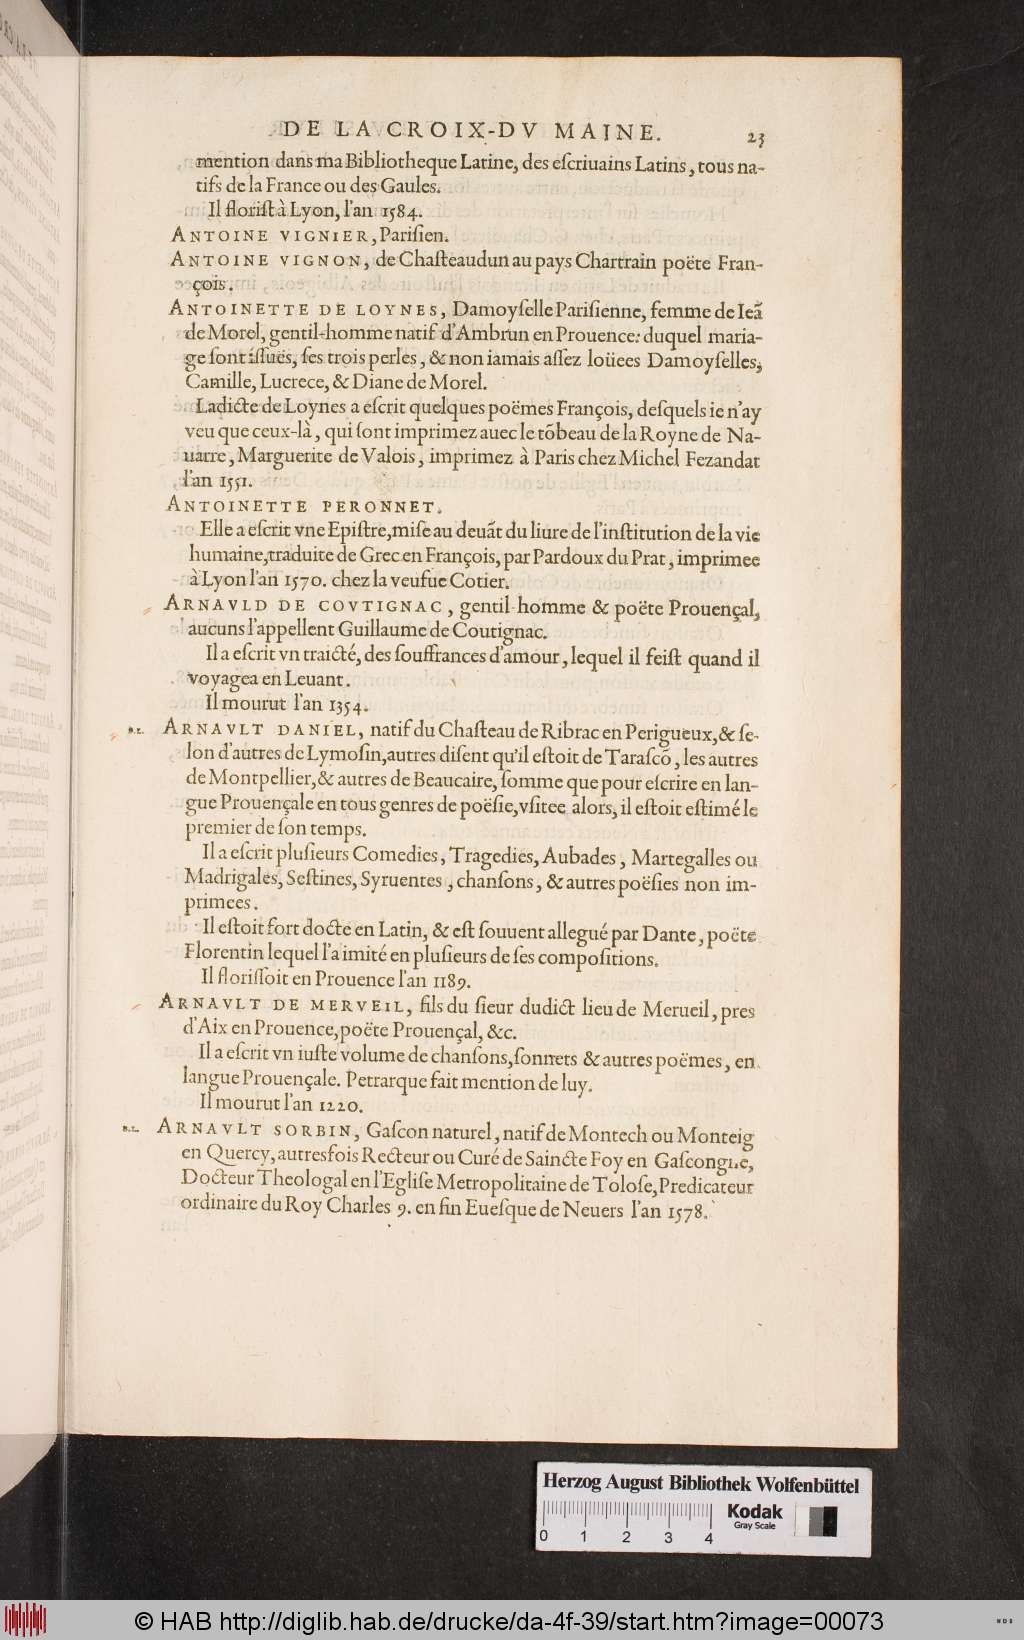 DE LA CROIX-DV MAINE. 23
mention dans ma Bibliotheque Latine, des eſcriuains Latins, tous na-
tifs de la France ou des Gaules.
Il floriſt à Lyon, l'an 1584.
ANTOINE VIGNIER, Pariſien.
ANTOINE VIGNON, de Chaſteaudun au pays Chartrain poëte Fran-
çois.
ANTOINETTE DE LOYNES, Damoyſelle Pariſienne, femme de Ieā
de Morel, gentil-homme natif d'Ambrun en Prouence: duquel maria-
ge ſont iſſues, ſes trois perles, & non iamais aſſez loüees Damoyſelles,
Camille, Lucrece, & Diane de Morel.
Ladicte de Loynes a eſcrit quelques poëmes François, deſquels ie n'ay
veu que ceux-là, qui ſont imprimez auec le tōbeau de la Royne de Na-
uarre, Marguerite de Valois, imprimez à Paris chez Michel Fezandat
l'an 1551.
ANTOINETTE PERONNET.
Elle a eſcrit vne Epiſtre, miſe au deuāt du liure de l'inſtitution de la vie
humaine, traduite de Grec en François, par Pardoux du Prat, imprimee
à Lyon l'an 1570. chez la veufue Cotier.
ARNAVLD DE COVTIGNAC, gentil-homme & poëte Prouençal,
aucuns l'appellent Guillaume de Coutignac.
Il a eſcrit vn traicté, des ſouffrances d'amour, lequel il feiſt quand il
voyagea en Leuant.
Il mourut l'an 1354.
B.L. ARNAVLT DANIEL, natif du Chaſteau de Ribrac en Perigueux, & ſe-
lon d'autres de Lymoſin, autres diſent qu'il eſtoit de Taraſcō, les autres
de Montpellier, & autres de Beaucaire, ſomme que pour eſcrire en lan-
gue Prouençale en tous genres de poëſie, vſitee alors, il eſtoit eſtimé le
premier de ſon temps.
Il a eſcrit pluſieurs Comedies, Tragedies, Aubades, Martegalles ou
Madrigales, Seſtines, Syruentes, chanſons, & autres poëſies non im-
primees.
Il eſtoit fort docte en Latin, & eſt ſouuent allegué par Dante, poëte
Florentin lequel l'a imité en pluſieurs de ſes compoſitions.
Il floriſſoit en Prouence l'an 1189.
ARNAVLT DE MERVEIL, fils du ſieur dudict lieu de Merueil, pres
d'Aix en Prouence, poëte Prouençal, &c.
Il a eſcrit vn iuſte volume de chanſons, ſonnets & autres poëmes, en
langue Prouençale. Petrarque fait mention de luy.
Il mourut l'an 1220.
B.L. ARNAVLT SORBIN, Gaſcon naturel, natif de Montech ou Monteig
en Quercy, autresfois Recteur ou Curé de Saincte Foy en Gaſcongne,
Docteur Theologal en l'Egliſe Metropolitaine de Toloſe, Predicateur
ordinaire du Roy Charles 9. en fin Eueſque de Neuers l'an 1578.
Herzog August Bibliothek Wolfenbüttel
Kodak
Gray Scale
0 1 2 3 4
© HAB http://diglib.hab.de/drucke/da-4f-39/start.htm?image=00073